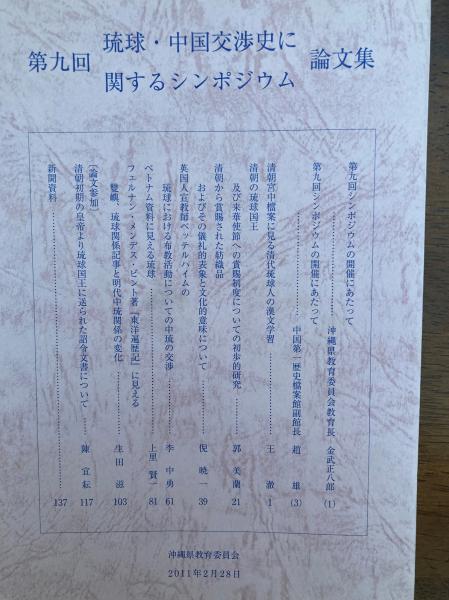 第九回
琉球・中国交渉史に
関するシンポジウム
論文集
第九回シンポジウムの開催にあたって
沖縄県教育委員会教育長 金武正八郎 (1)
第九回シンポジウムの開催にあたって
中国第一歴史檔案館副館長 趙 雄 (3)
清朝宮中檔案に見る清代琉球人の漢文学習 王 徹 1
清朝の琉球国王
及び来華使節への賞賜制度についての初歩的研究 郭 美蘭 21
清朝から賞賜された紡織品
およびその儀礼的表象と文化的意味について 倪 暁一 39
英国人宣教師ベッテルハイムの
琉球における布教活動についての中琉の交渉 李 中勇 61
ベトナム資料に見える琉球 上里 賢一 81
フェルナン・メンデス・ピント著『東洋遍歴記』に見える
雙嶼、琉球関係記事と明代中琉関係の変化 生田 滋 103
〔論文参加〕
清朝初期の皇帝より琉球国王に送られた詔令文書について 陳 宜耘 117
新聞資料 137
沖縄県教育委員会
2011年2月28日